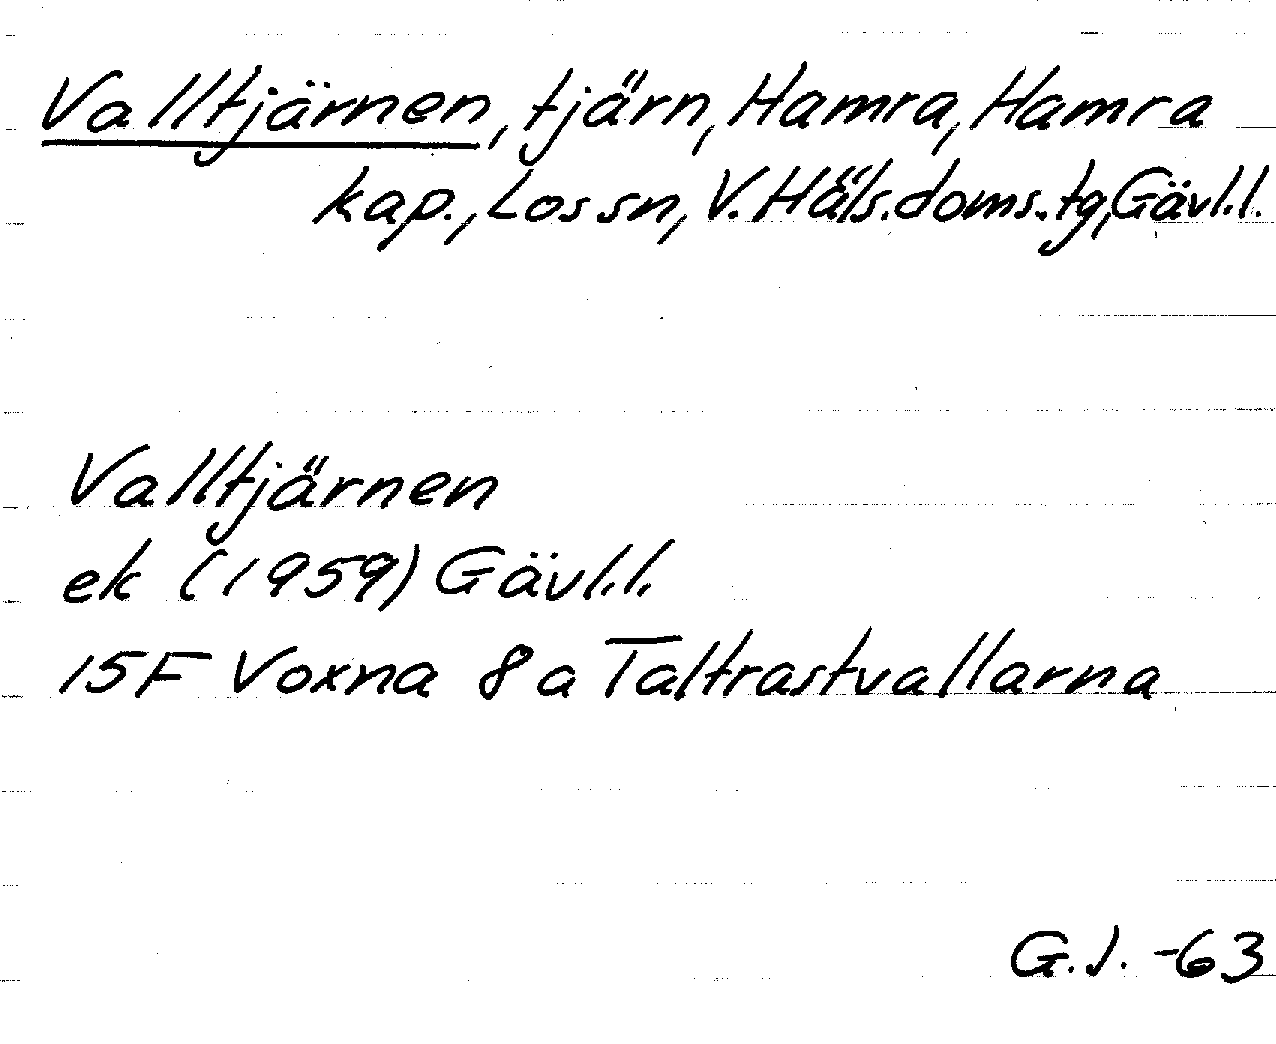 Valltjärnen, tjärn, Hamra, Hamra
kap., Los sn, V. Häls. doms. tg, Gävl.l.
Valltjärnen
ek (1959) Gävl.l.
15F Voxna 8a Taltrastvallarna
G.J. -63